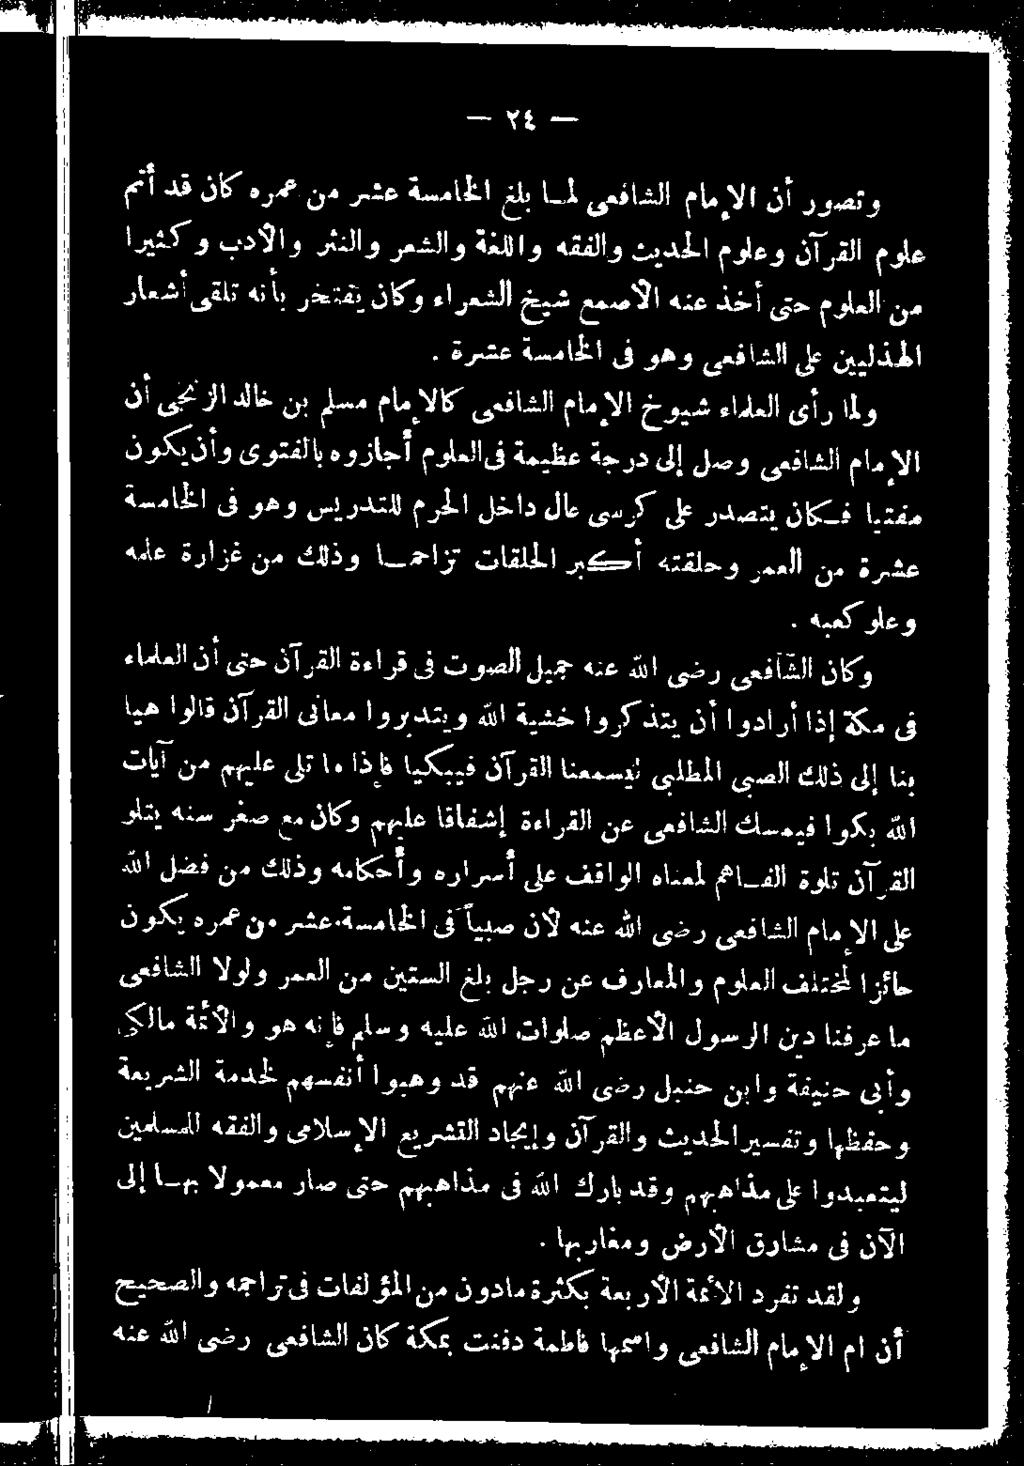 — ٢٤ —
وتصور أن الإمام الشافعى لمـا بلغ الخامسة عشر من عمره كان قد أتم
علوم القرآن وعلوم الحديث والفقه واللغة والشعر والنثر والأدب وكثيرا
من العلوم حتى أخذ عنه الأصمع شيخ الشعراء وكان يفتخر بأنه تلقى أشعار
الهذليين على الشافعى وهو فى الخامسة عشرة .
ولما رأى العلماء شيوخ الإمام الشافعى كالإمام مسلم بن خالد الزنجى أن
الإمام الشافعى وصل إلى درجة عظيمة فى العلوم أجازوه بالفتوى وأن يكون
مفتيا فـكان يتصدر على كرسى عال داخل الحرم للتدريس وهو فى الخامسة
عشرة من العمر وحلقته أكبر الحلقات تزاحمـا وذلك من غزارة علمه
وعلو كعبه .
وكان الشافعى رضى الله عنه جميل الصوت فى قراءة القرآن حتى أن العلماء
فى مكة إذا أرادوا أن يتذكروا خشية الله ويتدبروا معانى القرآن قالوا هيا
بنا إلى ذلك الصبى المطلبى يسمعنا القرآن فيبكيا فإذا ما تلى عليهم من آيات
الله بكوا فيمسك الشافعى عن القراءة إشفاقا عليهم وكان مع صغر سنه يتلو
القرآن تلوة الفـاهم لمعناه الواقف على أسراره وأحكامه وذلك من فضل الله
على الإمام الشافعى رضى الله عنه لأن صبياً فى الخامسة عشر من عمره يكون
حائزا لمختلف العلوم والمعارف عن رجل بلغ الستين من العمر ولولا الشافعى
ما عرفنا دين الرسول الأعظم صلوات الله عليه وسلم فإنه هو والأئمة مالكى
وأبى حنيفة وابن حنبل رضى الله عنهم قد وهبوا أنفسهم لخدمة الشريعة
وحفظها وتفسير الحديث والقرآن وإيجاد التشريع الإسلامى والفقه للمسلمين
ليتعبدوا على مذاهبهم وقد بارك الله فى مذاهبهم حتى صار معمولا بهـا إلى
الآن فى مشارق الأرض ومغاربها .
ولقد تفرد الأئمة الأربعة بكثرة مادون من المؤلفات فى تراجمه والصحيح
أن ام الإمام الشافعى واسمها فاطمة دفنت بمكة كان الشافعى رضى الله عنه